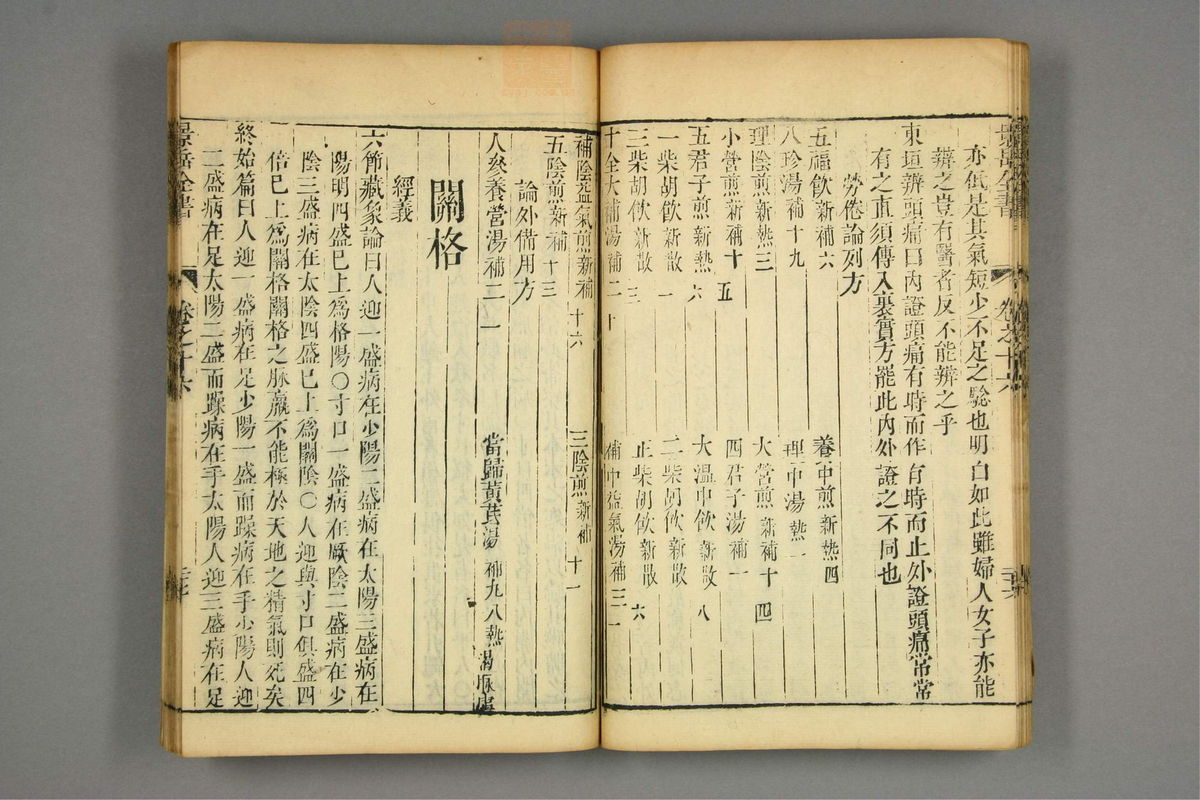 景岳全書
卷之十六
亦低是其氣短少不足之驗也明白如此雖婦人女子亦能
辨之豈有醫者反不能辨之乎
東垣辨頭痛曰內證頭痛有時而作有時而止外證頭痛常常
有之直須傳入裏實方罷此內外證之不同也
勞倦論列方
五福飲新補六 養中煎新熱四
八珍湯補十九 理中湯熱一
理陰煎新熱三 大營煎新補十四
小營煎新補十五 四君子湯補一
五君子煎新熱六 大溫中飲新散八
一柴胡飲新散一 二柴胡飲新散
三柴胡飲新散三 正柴胡飲新散六
十全大補湯補二十 補中益氣湯補三一
補陰益氣煎新補十六 三陰煎新補十一
五陰煎新補十三
論外備用方
人參養營湯補二一 當歸黃芪湯補九八熱渴脉虛
關格
經義
六節藏象論曰人迎一盛病在少陽二盛病在太陽三盛病在
陽明四盛巳上爲格陽〇寸口一盛病在厥陰二盛病在少
陰三盛病在太陰四盛巳上爲關陰〇人迎與寸口俱盛四
倍巳上爲關格關格之脉羸不能極於天地之精氣則死矣
終始篇曰人迎一盛病在足少陽一盛而躁病在手少陽人迎
二盛病在足太陽二盛而躁病在手太陽人迎三盛病在足
景岳全書
卷之十六